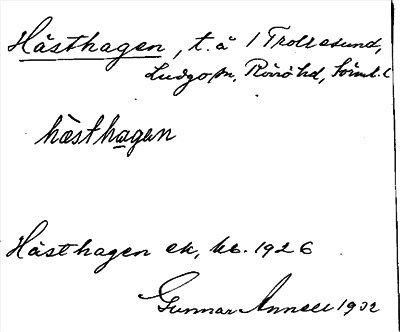 Hästhagen, t. å 1 Trollesund,
Ludgo sn, Rönö hd, Sörml.
hästhagen
Hästhagen ek, kb. 1926
Gunnar Annell 1932